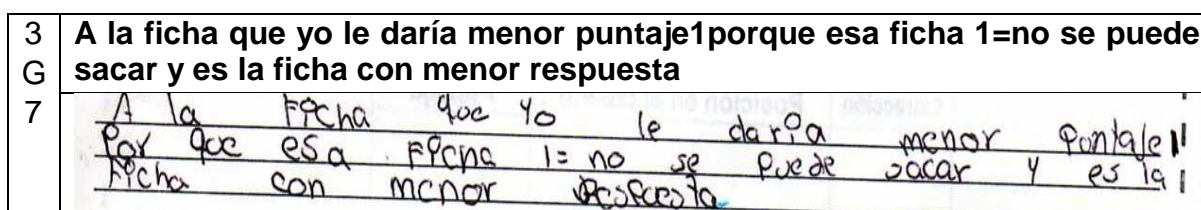 3
G
7
A la ficha que yo le daría menor puntaje1porque esa ficha 1=no se puede
sacar y es la ficha con menor respuesta
A la Ficha que yo le daria menor Pontaje 1
Por que esa Ficha 1= no se puede sacar y es la
Ficha con menor Respuesta